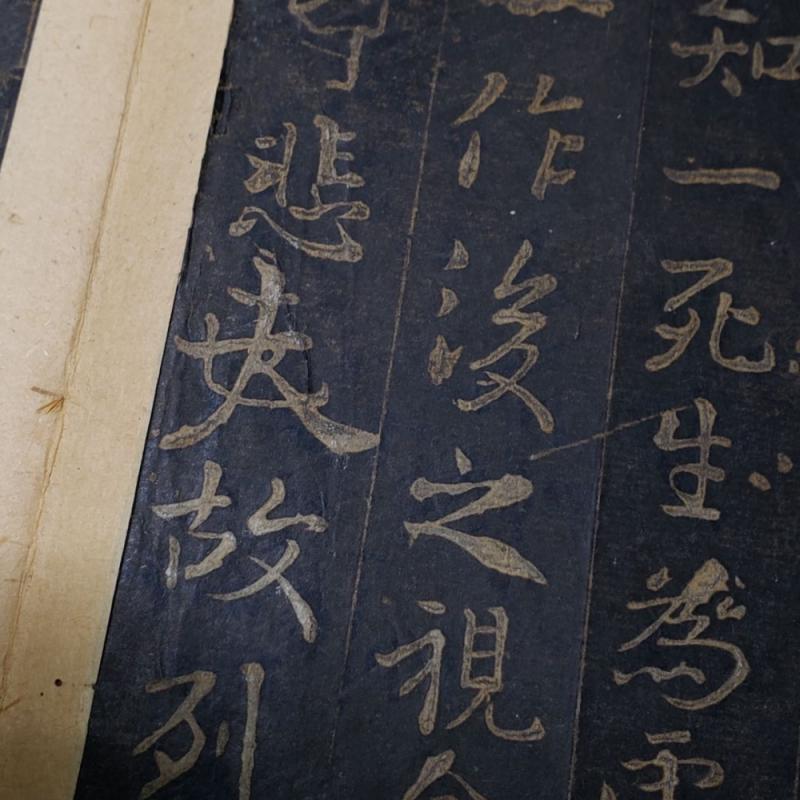 知一死生為
作後之視
悲夫故列